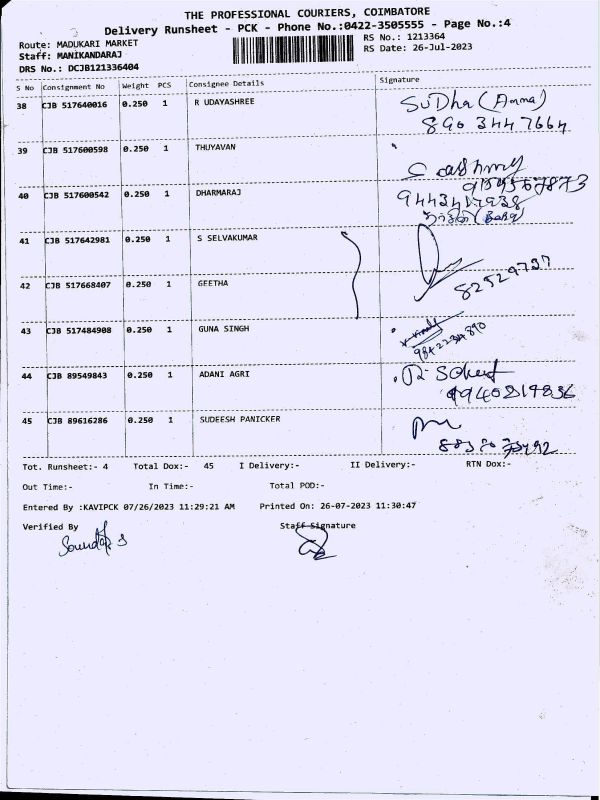 THE PROFESSIONAL COURIERS, COIMBATORE
Delivery Runsheet - PCK - Phone No.:0422-3505555 - Page No.:4
Route: MADUKARI MARKET
RS No.: 1213364
Staff: MANIKANDARAJ
RS Date: 26-Jul-2023
DRS No.: DCJB121336404
S No Consignment No Weight PCS Consignee Details Signature
38 CJB 517640016 0.250 1 R UDAYASHREE SuDha (Amma)
890 3447664
39 CJB 517600598 0.250 1 THUYAVAN
40 CJB 517600542 0.250 1 DHARMARAJ
41 CJB 517642981 0.250 1 S SELVAKUMAR
42 CJB 517668407 0.250 1 GEETHA
43 CJB 517484908 0.250 1 GUNA SINGH
44 CJB 89549843 0.250 1 ADANI AGRI
45 CJB 89616286 0.250 1 SUDEESH PANICKER
Tot. Runsheet:- 4 Total Dox:- 45 I Delivery:- II Delivery:- RTN Dox:-
Out Time:- In Time:- Total POD:-
Entered By :KAVIPCK 07/26/2023 11:29:21 AM Printed On: 26-07-2023 11:30:47
Verified By Staff Signature